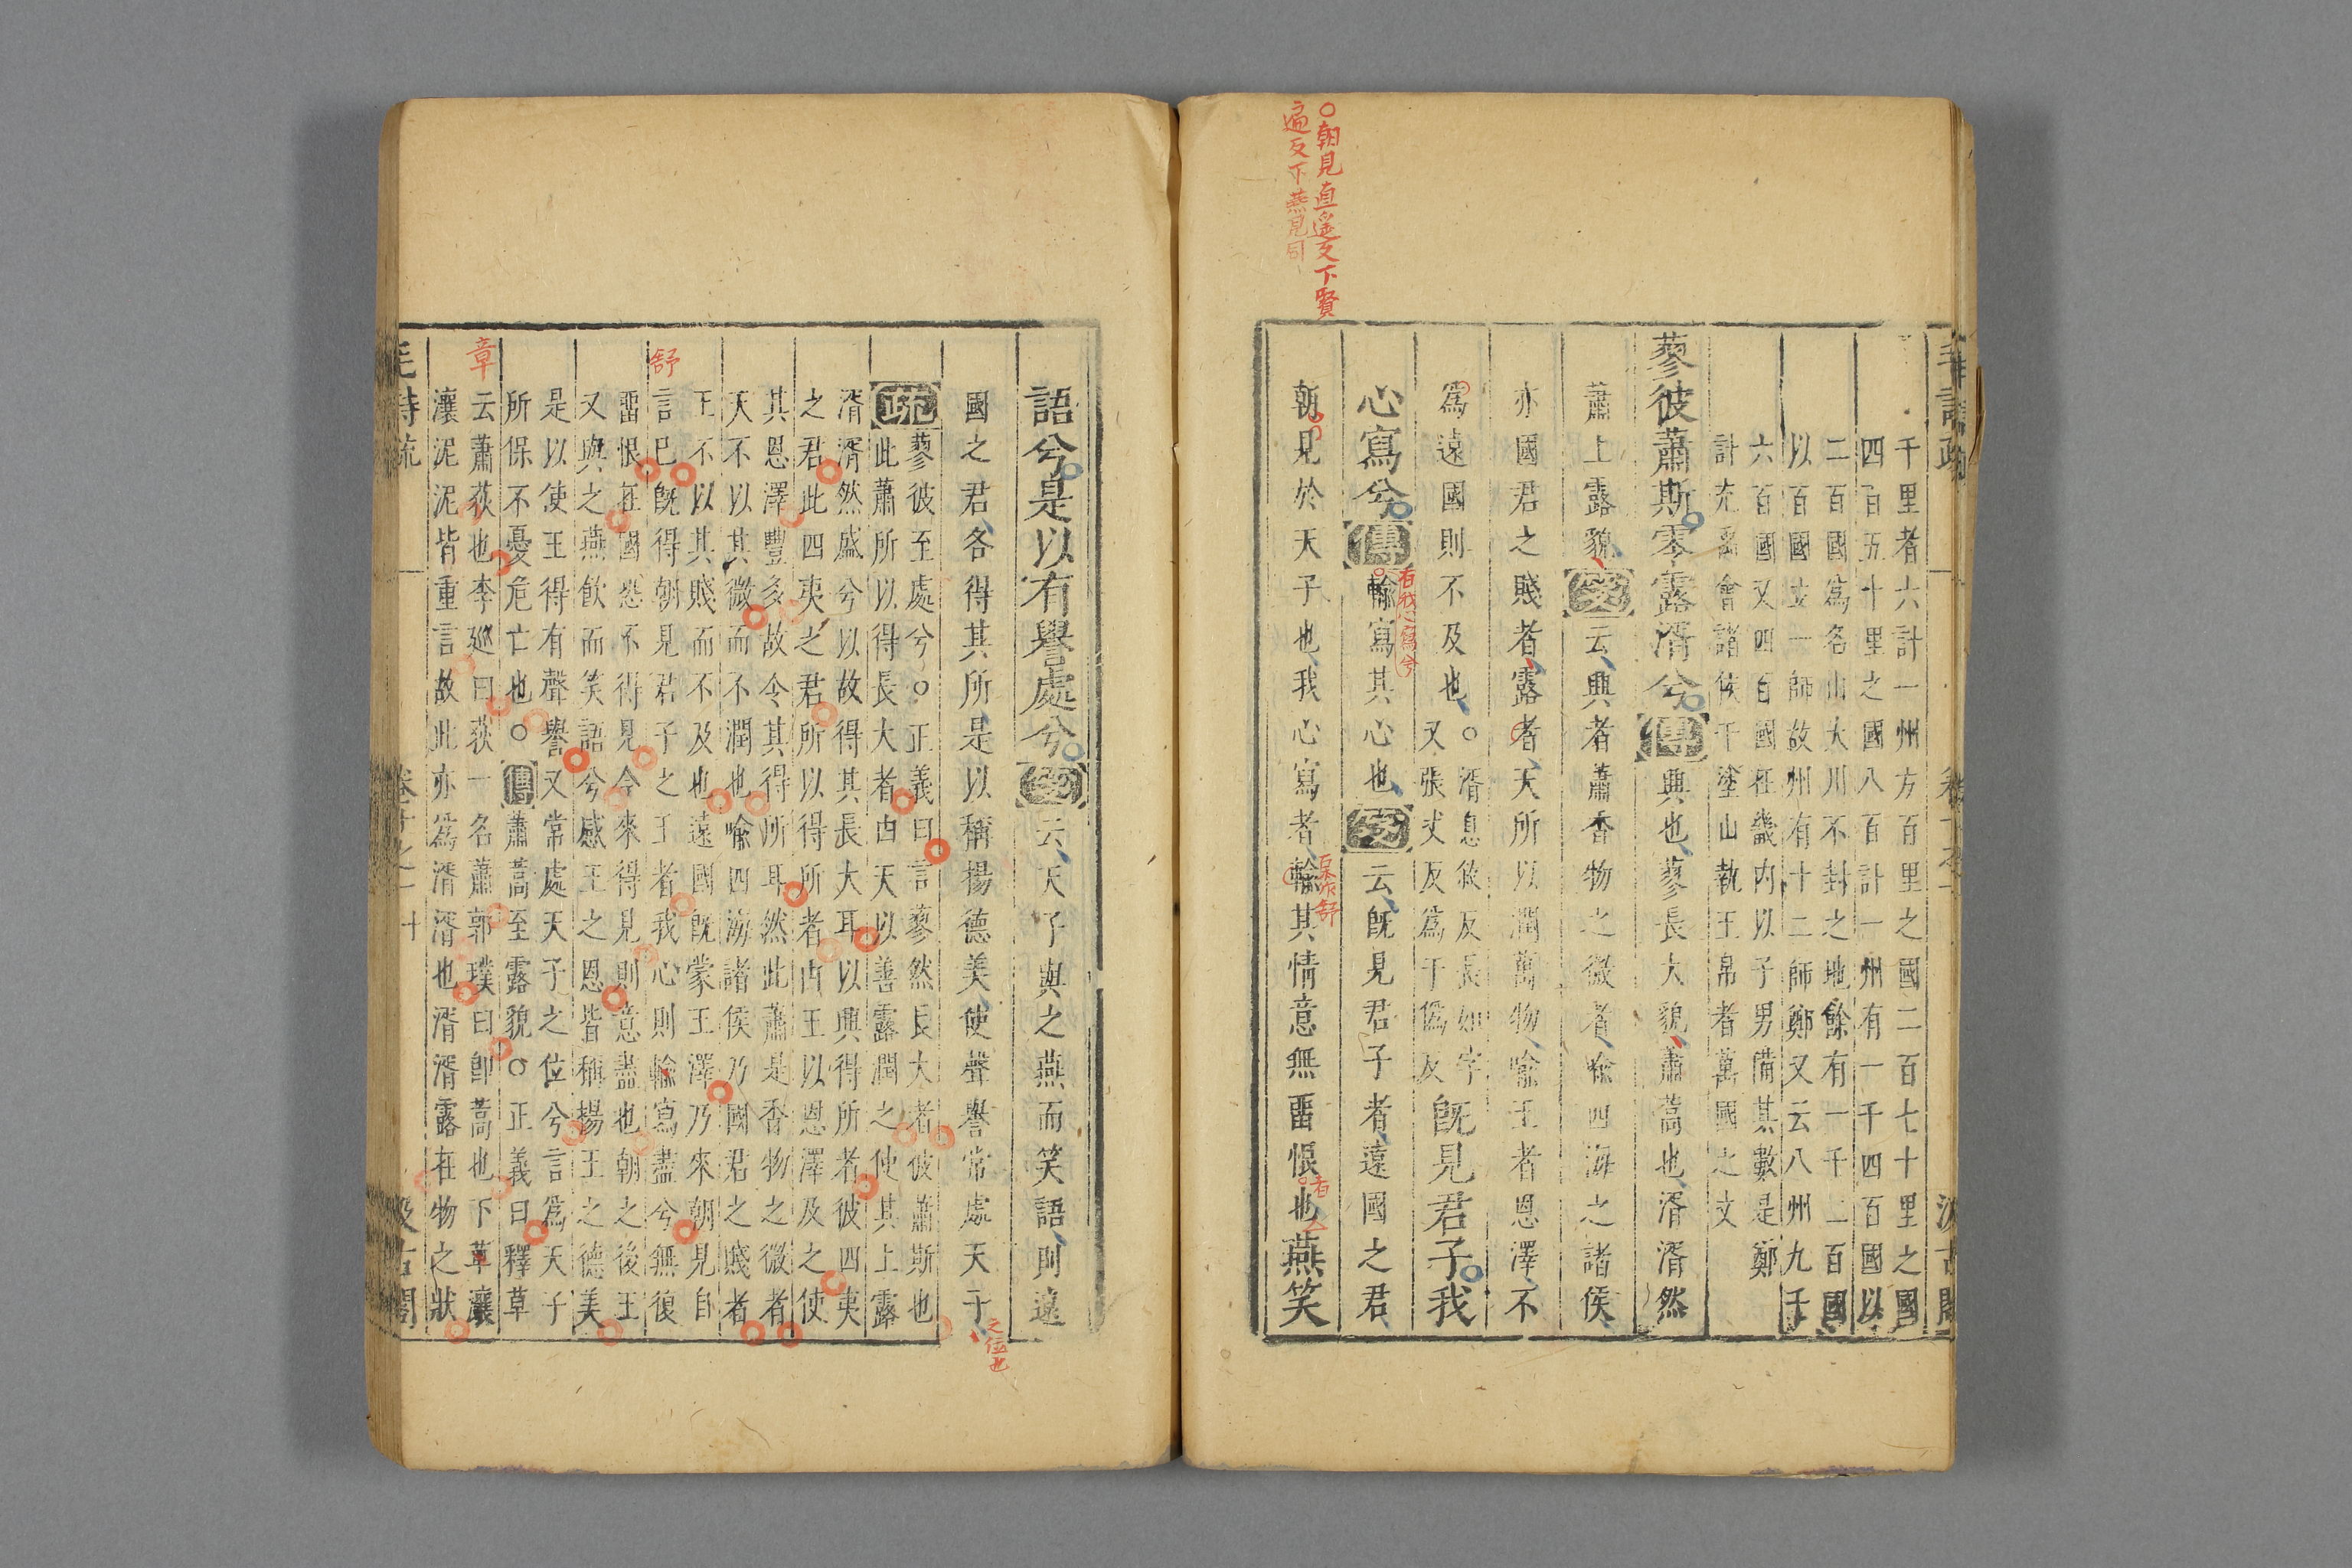 〇朝見直遥反下賢
遍反下燕見同
千里者六計一州方百里之國二百七十里之國
四百五十里之國八百計一州有一千四百國以
二百國為名山大川不封之地餘有一千二百國
以百國立一師故州有十二師鄭又云八州九千
六百國又四百國在畿内以子男備其數是鄭
計充禹會諸侯于塗山執玉帛者萬國之文
蓼彼蕭斯零露湑兮傳興也蓼長大貌蕭蒿也湑湑然
蕭上露貌箋云興者蕭香物之微者喻四海之諸侯
亦國君之賤者露者天所以潤萬物喻王者恩澤不
為遠國則不及也〇湑息敘反長如字
又張丈反為于偽反既見君子我
心寫兮傳輸寫其心也箋云既見君子者遠國之君
有我心寫兮
朝見於天子也我心寫者輸其情意無畱恨也燕笑
巨作舒
者
語兮是以有譽處兮箋云天子與之燕而笑語則遠
國之君各得其所是以稱揚德美使聲譽常處天子
之位也
疏蓼彼至處兮〇正義曰言蓼然長大者彼蕭斯也
此蕭所以得長大者由天以善露潤之使其上露
湑湑然盛兮以故得其長大耳以興得所者彼四夷
之君此四夷之君所以得所者由王以恩澤及之使
其恩澤豐多故令其得所耳然此蕭是香物之微者
天不以其微而不潤也喻四海諸侯乃國君之賤者
王不以其賤而不及也遠國既蒙王澤乃來朝見自
言已既得朝見君子之王者我心則輸寫盡兮無復
舒
畱恨在國恐不得見今來得見則意盡也朝之後王
又與之燕飲而笑語兮感王之恩皆稱揚王之德美
是以使王得有聲譽又常處天子之位兮言為天子
所保不憂危亡也〇傳蕭蒿至露貌〇正義曰釋草
云蕭荻也李巡曰荻一名蕭郭璞曰卽蒿也下章瀼
章
瀼泥泥皆重言故此亦為湑湑也湑湑露在物之狀